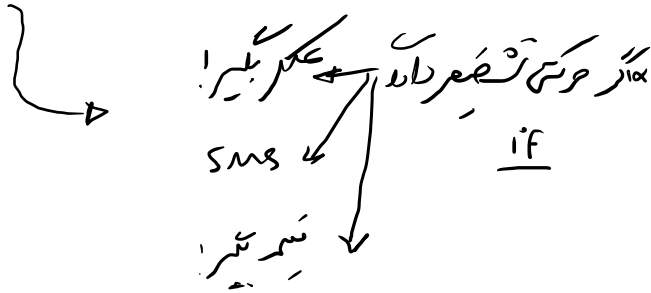 اگر حرکتی تشخیص دادی عکس بگیر!
if
SMS
فیلم بگیر!